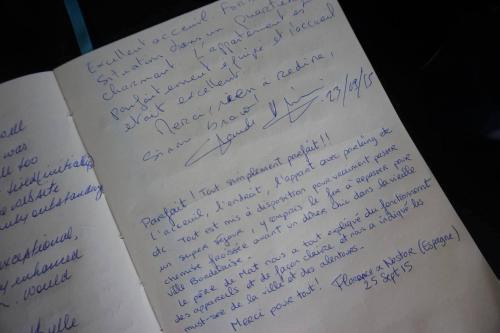 Excellent acceuil
Situation dans un quartier
charmant. L'appartement est
parfaitement équipé et l'accueil
était excellent.
Merci, rien à redire,
sinon bravo!
23/09/15
Parfait! Tout simplement parfait!!
L'acceuil, l'endroit, l'appart avec parking etc
etc Tout est mis à disposition pour vraiment passer
un super séjour, y compris le fer à repasser pour
chemise froissée avant un dîner chic dans la vieille
ville Bordelaise.
Le père de Mat nous a tout expliqué du fonctionnement
des appareils et de façon claire et nous a indiqué les
must-see de la ville et des alentours.
Merci pour tout! Florence & Nestor (Espagne)
25 Sept 15
was
too
website
exceptional,
would